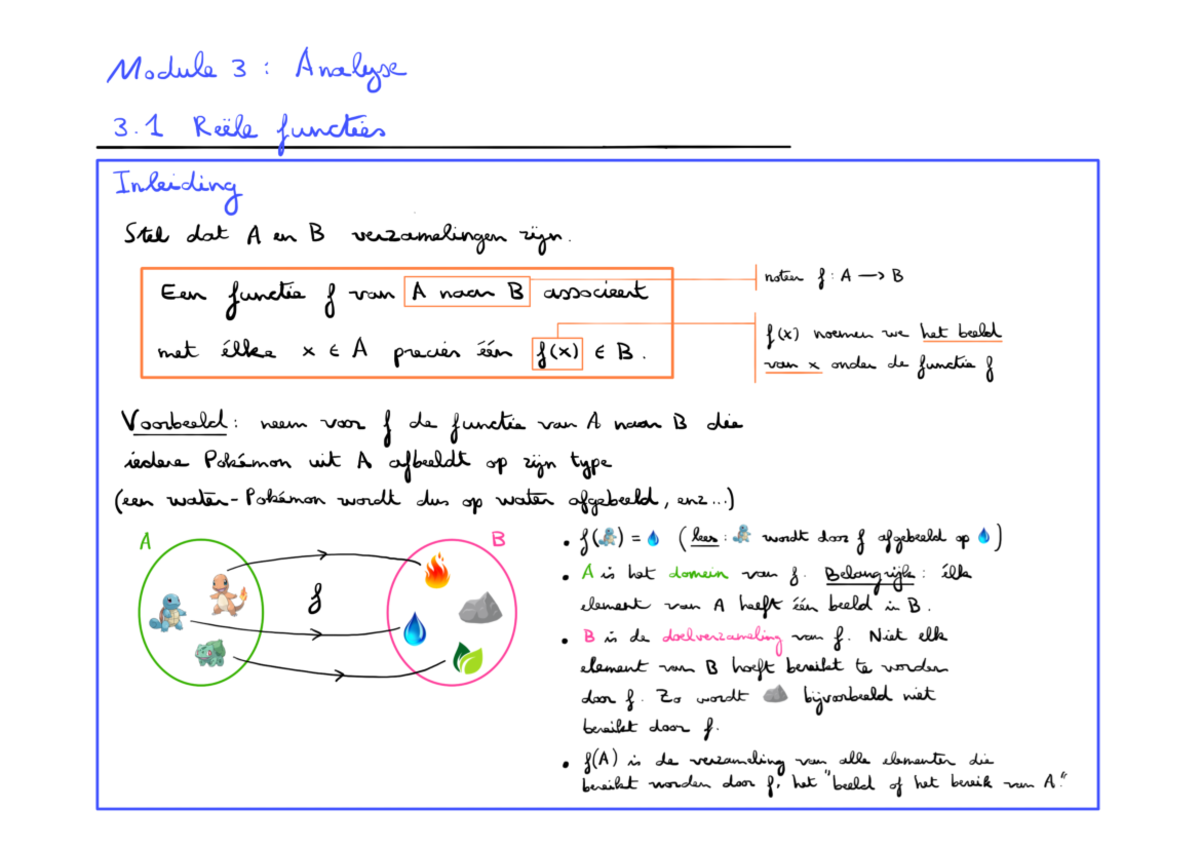 Module 3 : Analyse
3.1 Reële functies
Inleiding
Stel dat A en B verzamelingen zijn.
Een functie f van A naar B associeert
met élke x ∈ A precies één f(x) ∈ B.
noteer f : A → B
f(x) noemen we het beeld
van x onder de functie f
Voorbeeld: neem voor f de functie van A naar B die
iedere Pokémon uit A afbeeldt op zijn type
(een water-Pokémon wordt dus op water afgebeeld, enz...)
A
B
f
• f( ) = ( lees : wordt door f afgebeeld op )
• A is het domein van f. Belangrijk : élk
element van A heeft één beeld in B.
• B is de doelverzameling van f. Niet elk
element van B hoeft bereikt te worden
door f. Zo wordt bijvoorbeeld niet
bereikt door f.
• f(A) is de verzameling van alle elementen die
bereikt worden door f, het "beeld of het bereik van A."